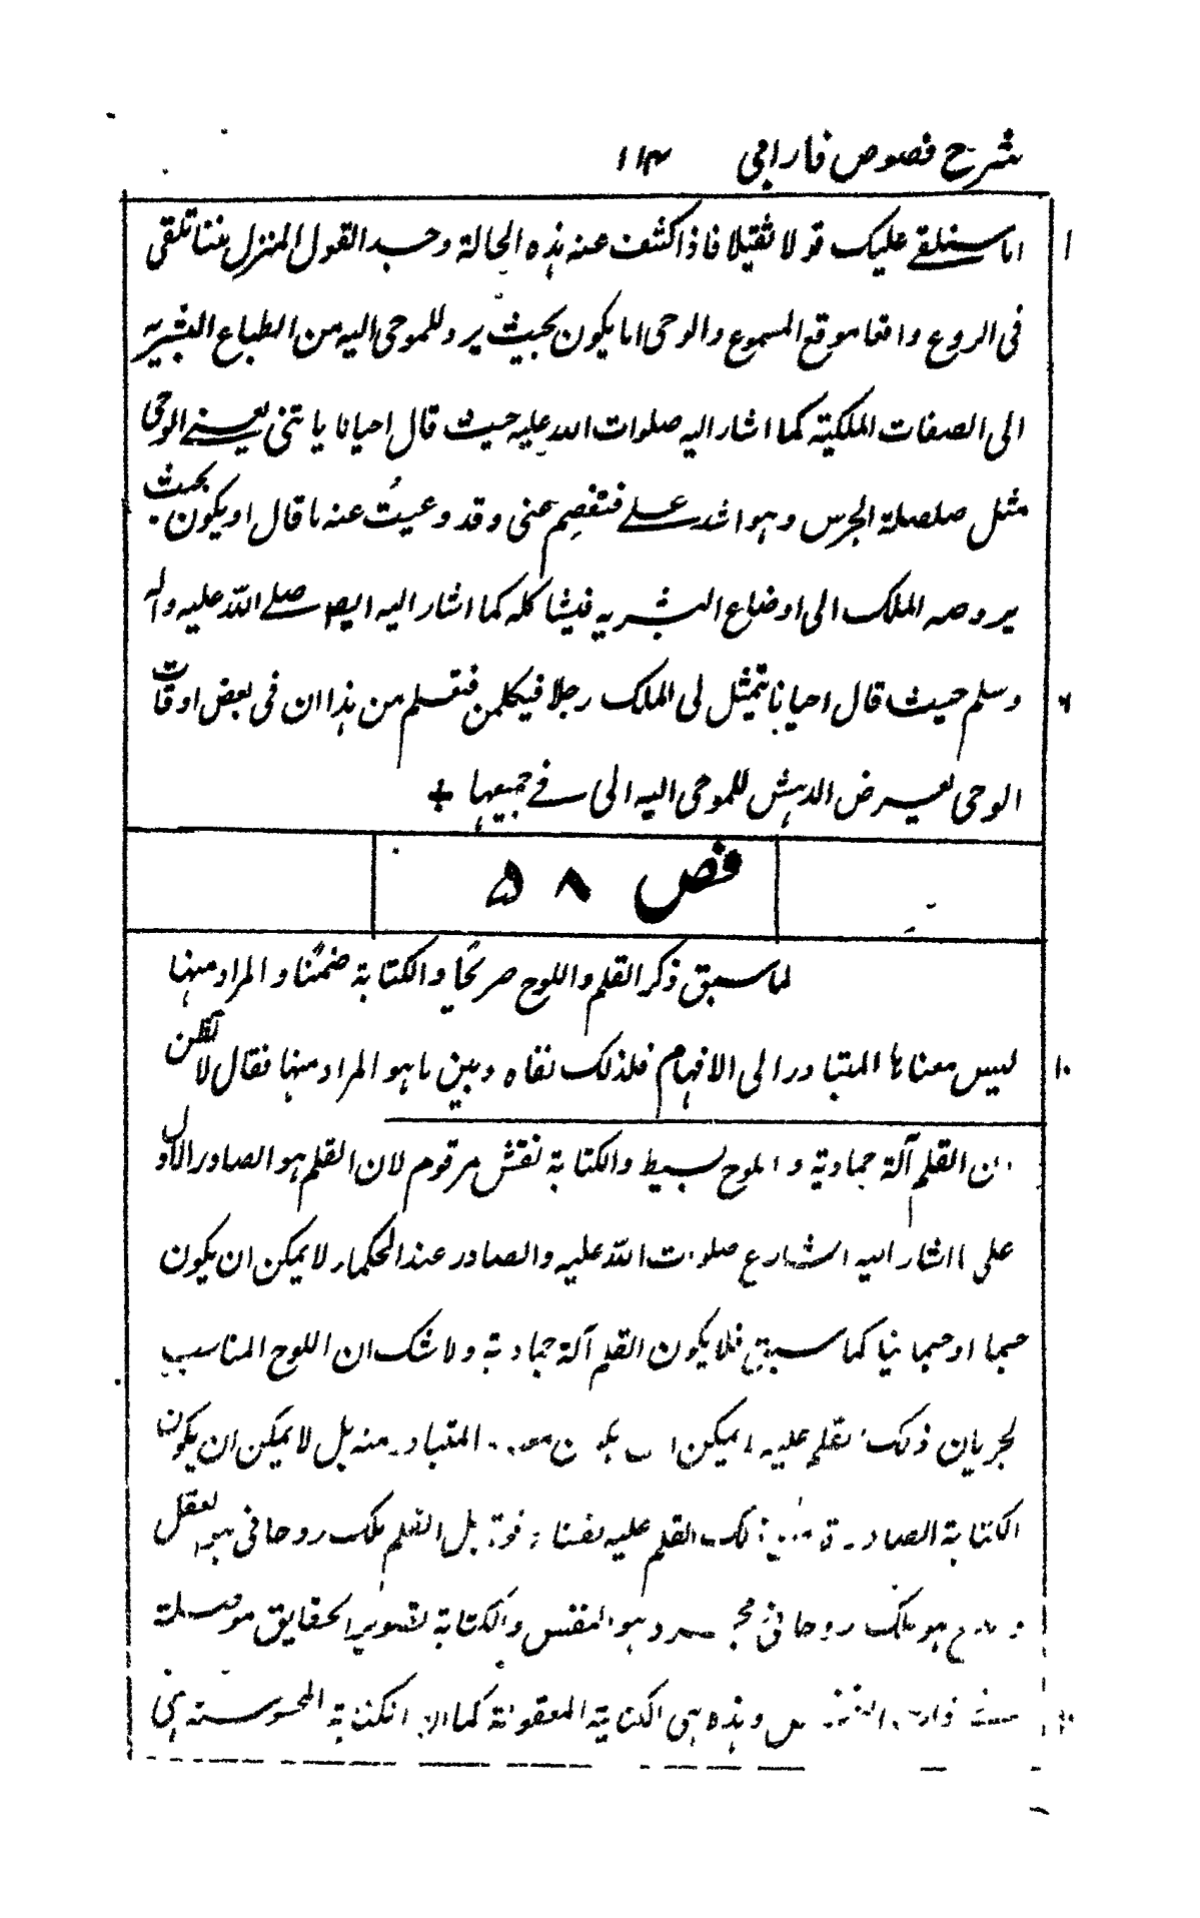 شرح فصوص فارابی ۱۱۴
۱ انا سنلقے علیک قولا ثقیلا فاذا کشف عنہ ہذہ الحالۃ وجد القول المنزل بغتا تلقی
فی الروع واقعا موقع المسموع والوحی اما یکون بحیث یرد للموحی الیہ من الطباع البشریہ
الی الصفات الملکیۃ کما اشار الیہ صلوات اللہ علیہ حیث قال احیانا یاتنی یعنے الوحی
مثل صلصلۃ الجرس وہو اشد علے فتفصم عنی وقد وعیت عنہ ما قال او یکون بحیث
یروحہ الملک الی اوضاع البشریہ فیشاکلہ کما اشار الیہ ایضا صلے اللہ علیہ والہ
وسلم حیث قال احیانا یتمثل لی الملک رجلا فیکلمن فتعلم من ہذا ان فی بعض اوقات
الوحی یعرض الدہش للموحی الیہ الی فے جمیعہا +
فص ۵۸
لما سبق ذکر القلم واللوح صریحا والکتابۃ ضمنا والمراد منہا
۱۰ لیس معناہا المتبادر الی الافہام فلذلک نفاہ وبین ما ہو المراد منہا فقال لا تظن
ان القلم آلۃ جمادیۃ واللوح بسیط والکتابۃ نقش مرقوم لان القلم ہو الصادر الاول
علی ما اشار الیہ الشارع صلوات اللہ علیہ والصادر عند الحکماء لا یمکن ان یکون
جسما او جسمانیا کما سبق فلا یکون القلم آلۃ جمادیۃ ولا شک ان اللوح المناسب
لجریان ذلک القلم علیہ المتبادر منہ بل لا یمکن ان یکون
الکتابۃ الصادرۃ القلم علیہ نقشا بل القلم ملک روحانی العقل
ہو ملک روحانی مجرد ہو النفس والکتابۃ تصویر الحقایق
وہذہ ہی الکتابۃ المعقولۃ کما ان الکتابۃ المحسوسۃ ہی